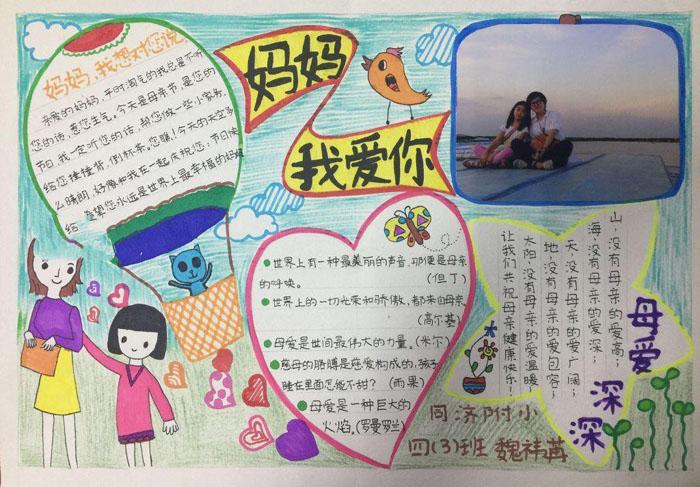 妈妈，我想对您说
亲爱的妈妈，平时淘气的我总是不听
您的话，惹您生气。今天是母亲节，是您的
节日，我一定听您的话，帮您做一些小家务，
给您捶捶背，倒杯茶。您瞧！今天的天空多
么晴朗，好像和我在一起庆祝您：节日快
妈妈
我爱你
世界上有一种最美丽的声音，那便是母亲
的呼唤。（但丁）
世界上的一切光荣和骄傲，都来自母亲。
（高尔基）
母爱是世间最伟大的力量。（米尔）
慈母的胳膊是慈爱构成的，孩子
睡在里面怎能不甜？（雨果）
母爱是一种巨大的
火焰。（罗曼罗兰）
山，没有母亲的爱高；
海，没有母亲的爱深；
天，没有母亲的爱广阔；
地，没有母亲的爱包容；
太阳，没有母亲的爱温暖；
让我们共祝母亲健康快乐！
母爱深深
同济附小
四（3）班 魏祎苒